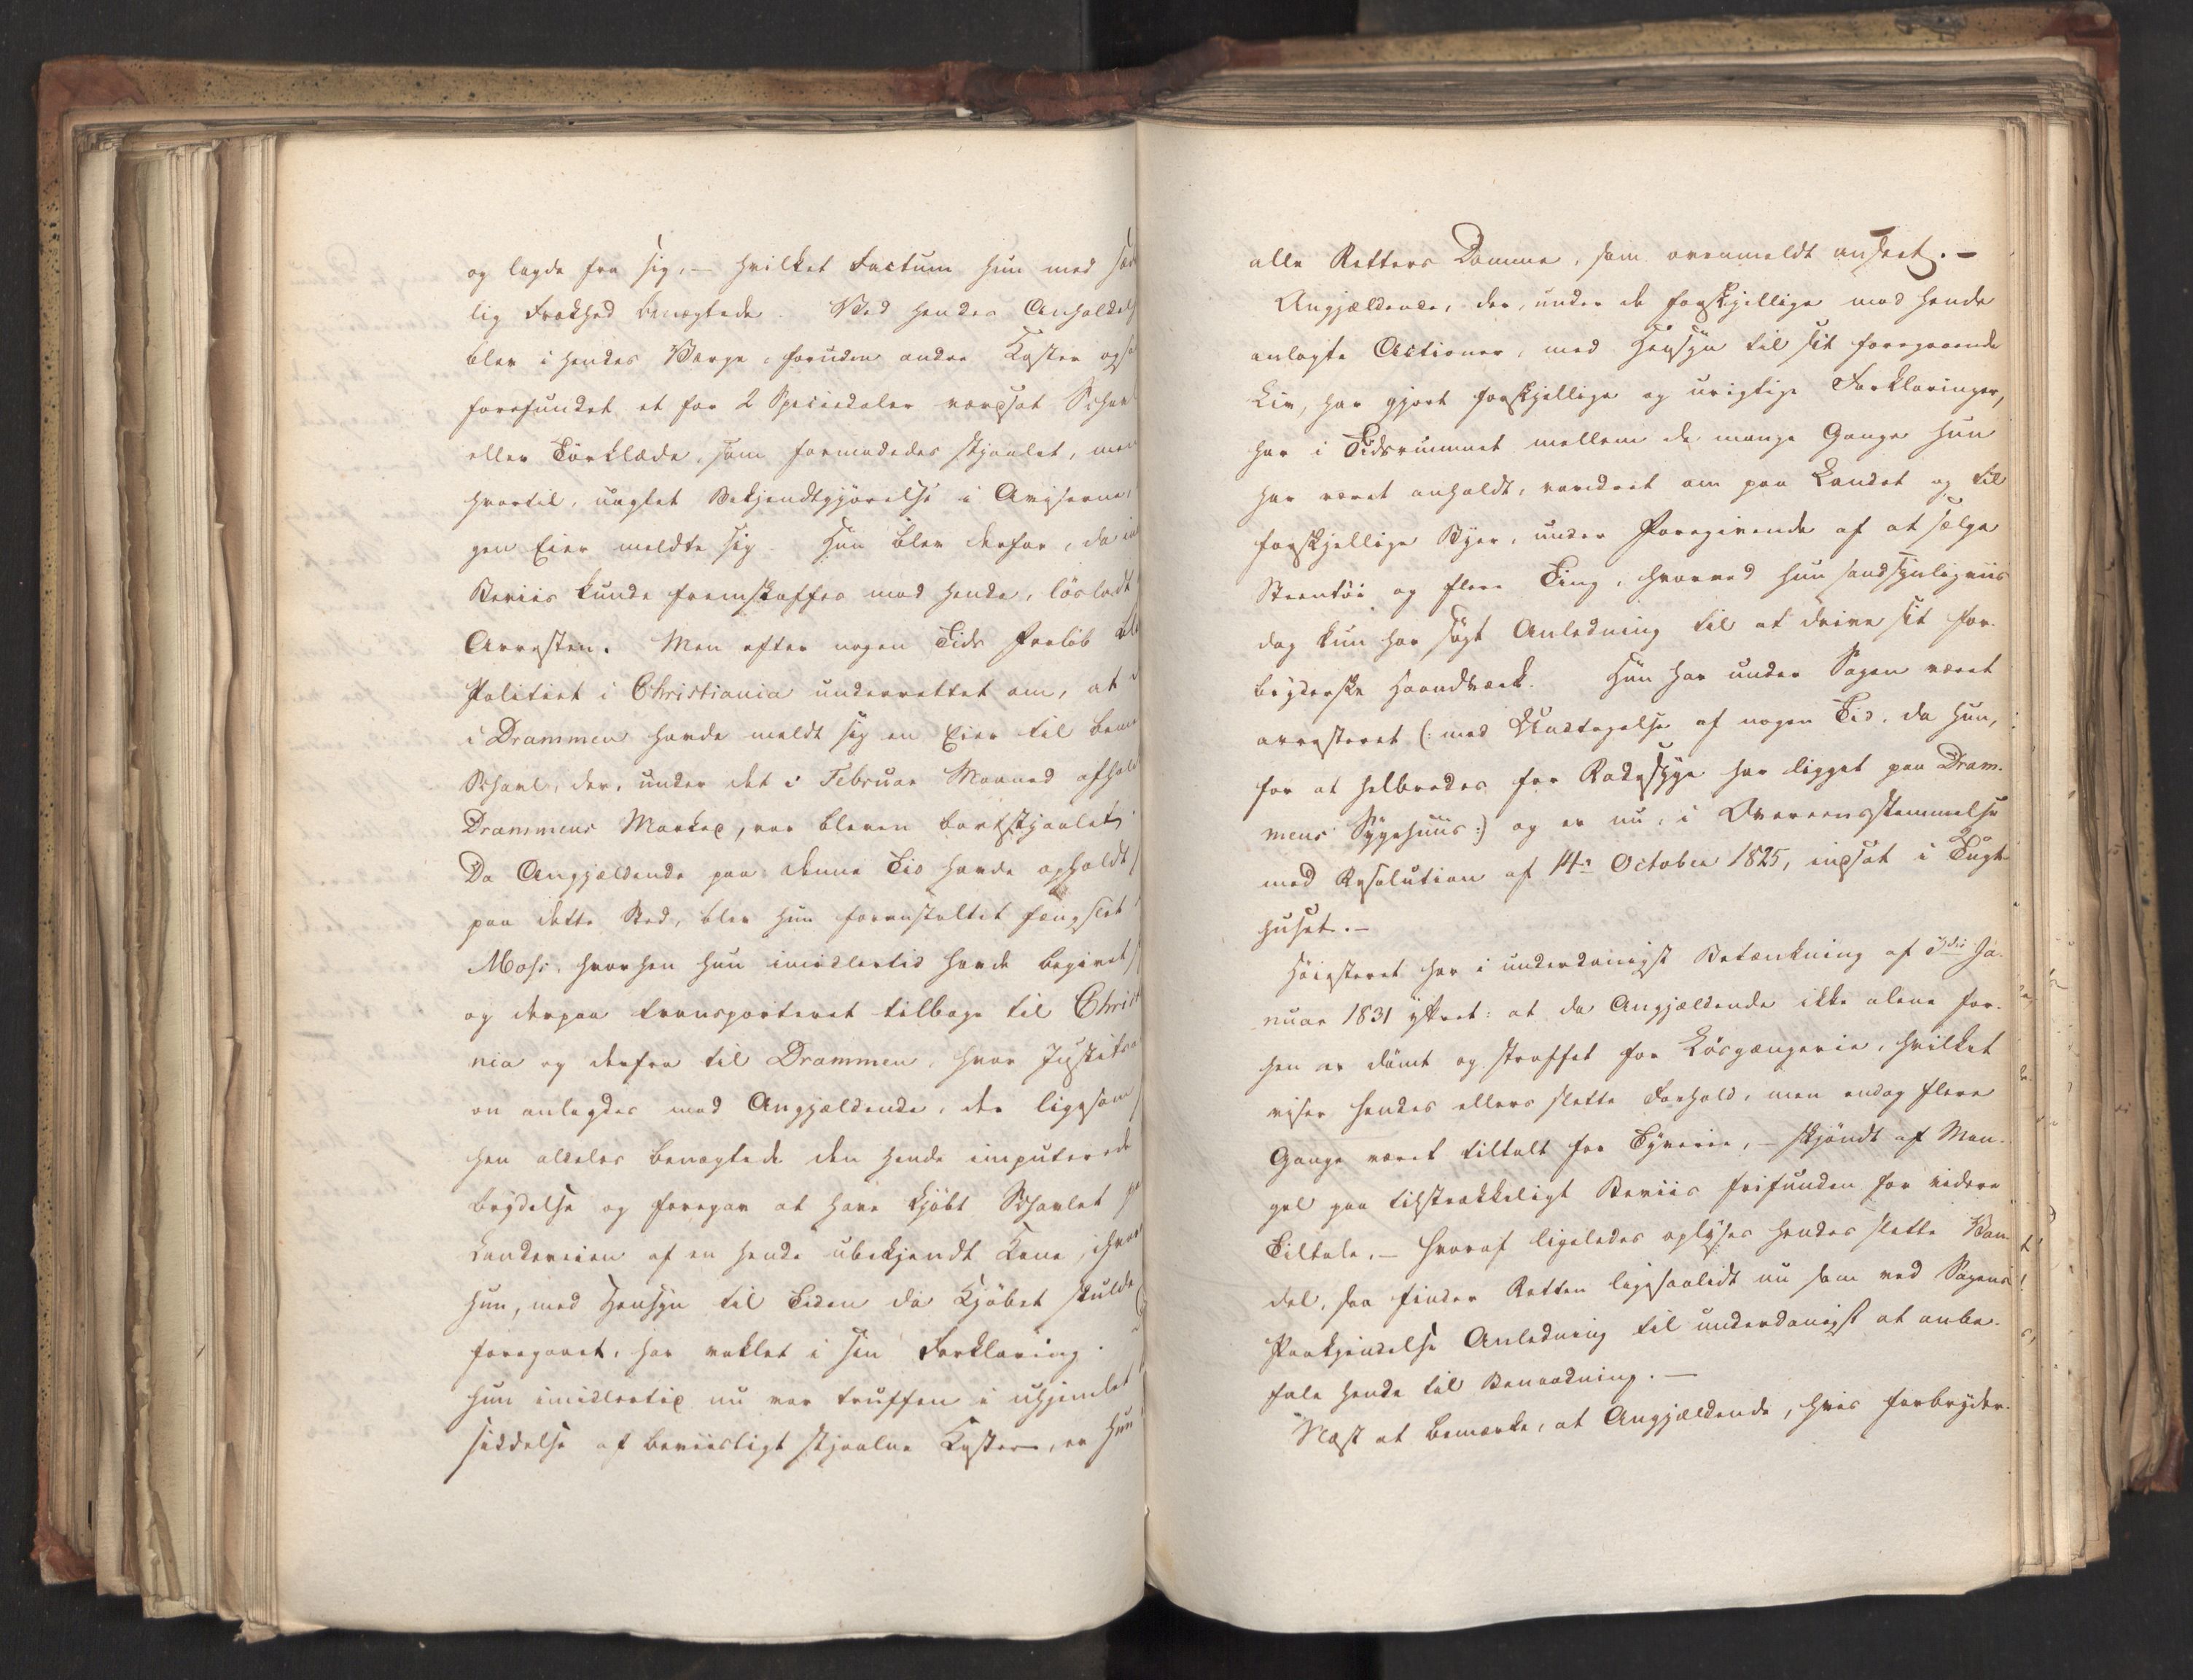 og lagde fra sig, — hvilket Factum hun med sæd
lig Frækhed benægtede. Ved hendes Anholdels
blev i hendes Værge, foruden andre Koster ogs
forefundet et for 2 Speciedaler værdsat Schavl
eller Törklæde, som formodedes stjaalet, men
hvortil, uagtet Bekjendtgjörelse i Aviserne,
gen Eier meldte sig. Hun blev derfor, da in
Beviis kunde fremskaffes mod hende, lösladt
Arresten. Men efter nogen Tids Forlöb bl
Politiet i Christiania underrettet om, at
i Drammen havde meldt sig en Eier til bem
Schavl, der, under det i Februar Maaned afhold
Drammens Marked, var bleven bortstjaalet.
Da Angjældende paa denne Tid havde opholdt
paa dette Sted, blev hun foranstaltet fængslet
Moss, hvorhen hun imidlertid havde begivet
og derpaa transporteret tilbage til Christ
nia og derfra til Drammen, hvor Justitsa
on anlagdes mod Angjældende, der ligesom
hen aldeles benægtede den hende imputerede
brydelse og foregav at have kjöbt Schavlet
Landeveien af en hende ubekjendt Kone, ihvor
hun, med Hensyn til Tiden da Kjöbet skulde
foregaaet, har vaklet i sin Forklaring.
hun imidlertid nu var truffen i uhjemlet
siddelse af beviisligt stjaalne Koster, er hun
alle Retters Domme, som ovenmeldt anseet. —
Angjældende, der, under de forskjellige mod hende
anlagte Actioner, med Hensyn til sit foregaaende
Liv, har gjort forskjellige og urigtige Forklaringer,
har i Tidsrummet mellem de mange Gange hun
har været anholdt, vandret om paa Landet og til
forskjellige Byer, under Foregivende af at sælge
Steentöi og flere Ting, hvorved hun sandsynligviis
dog kun har sögt Anledning til at drive sit for-
bryderske Haandværk. Hun har under Sagen været
arresteret (: med Undtagelse af nogen Tid, da hun,
for at helbredes for Radesyge har ligget paa Dram-
mens Sygehuus :) og er nu, i Overeensstemmelse
med Resolution af 14de October 1825, indsat i Tugt-
huset. —
Höiesteret har i underdanigst Betænkning af Ja-
nuar 1831 yttret: at da Angjældende ikke alene for-
hen er dömt og straffet for Lösgængerie, hvilket
viser hendes ellers slette Forhold, men endog flere
Gange været tiltalt for Tyverie, — skjöndt af Man-
gel paa tilstrækkeligt Beviis frifunden for videre
Tiltale, — hvoraf ligeledes oplyses hendes slette Van-
del, saa finder Retten ligesaalidt nu som ved Sagens
Paakjendelse Anledning til underdanigst at anbe-
fale hende til Benaadning. —
Næst at bemærke, at Angjældende, hvis forbryder-